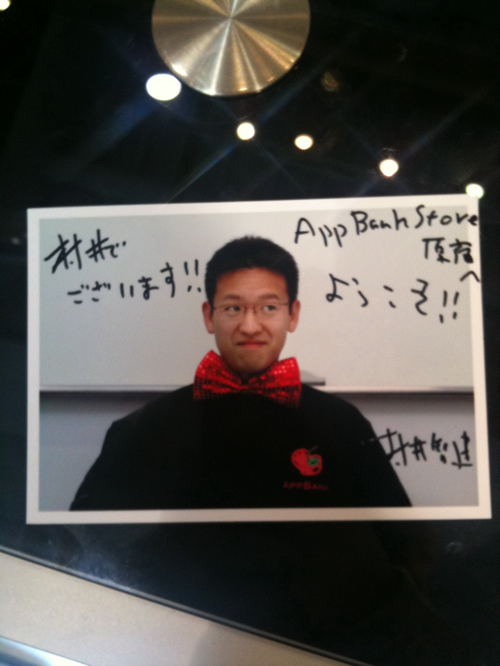 村井で
ございます!!
AppBankStore
原宿
へ
ようこそ!!
村井智建
AppBank